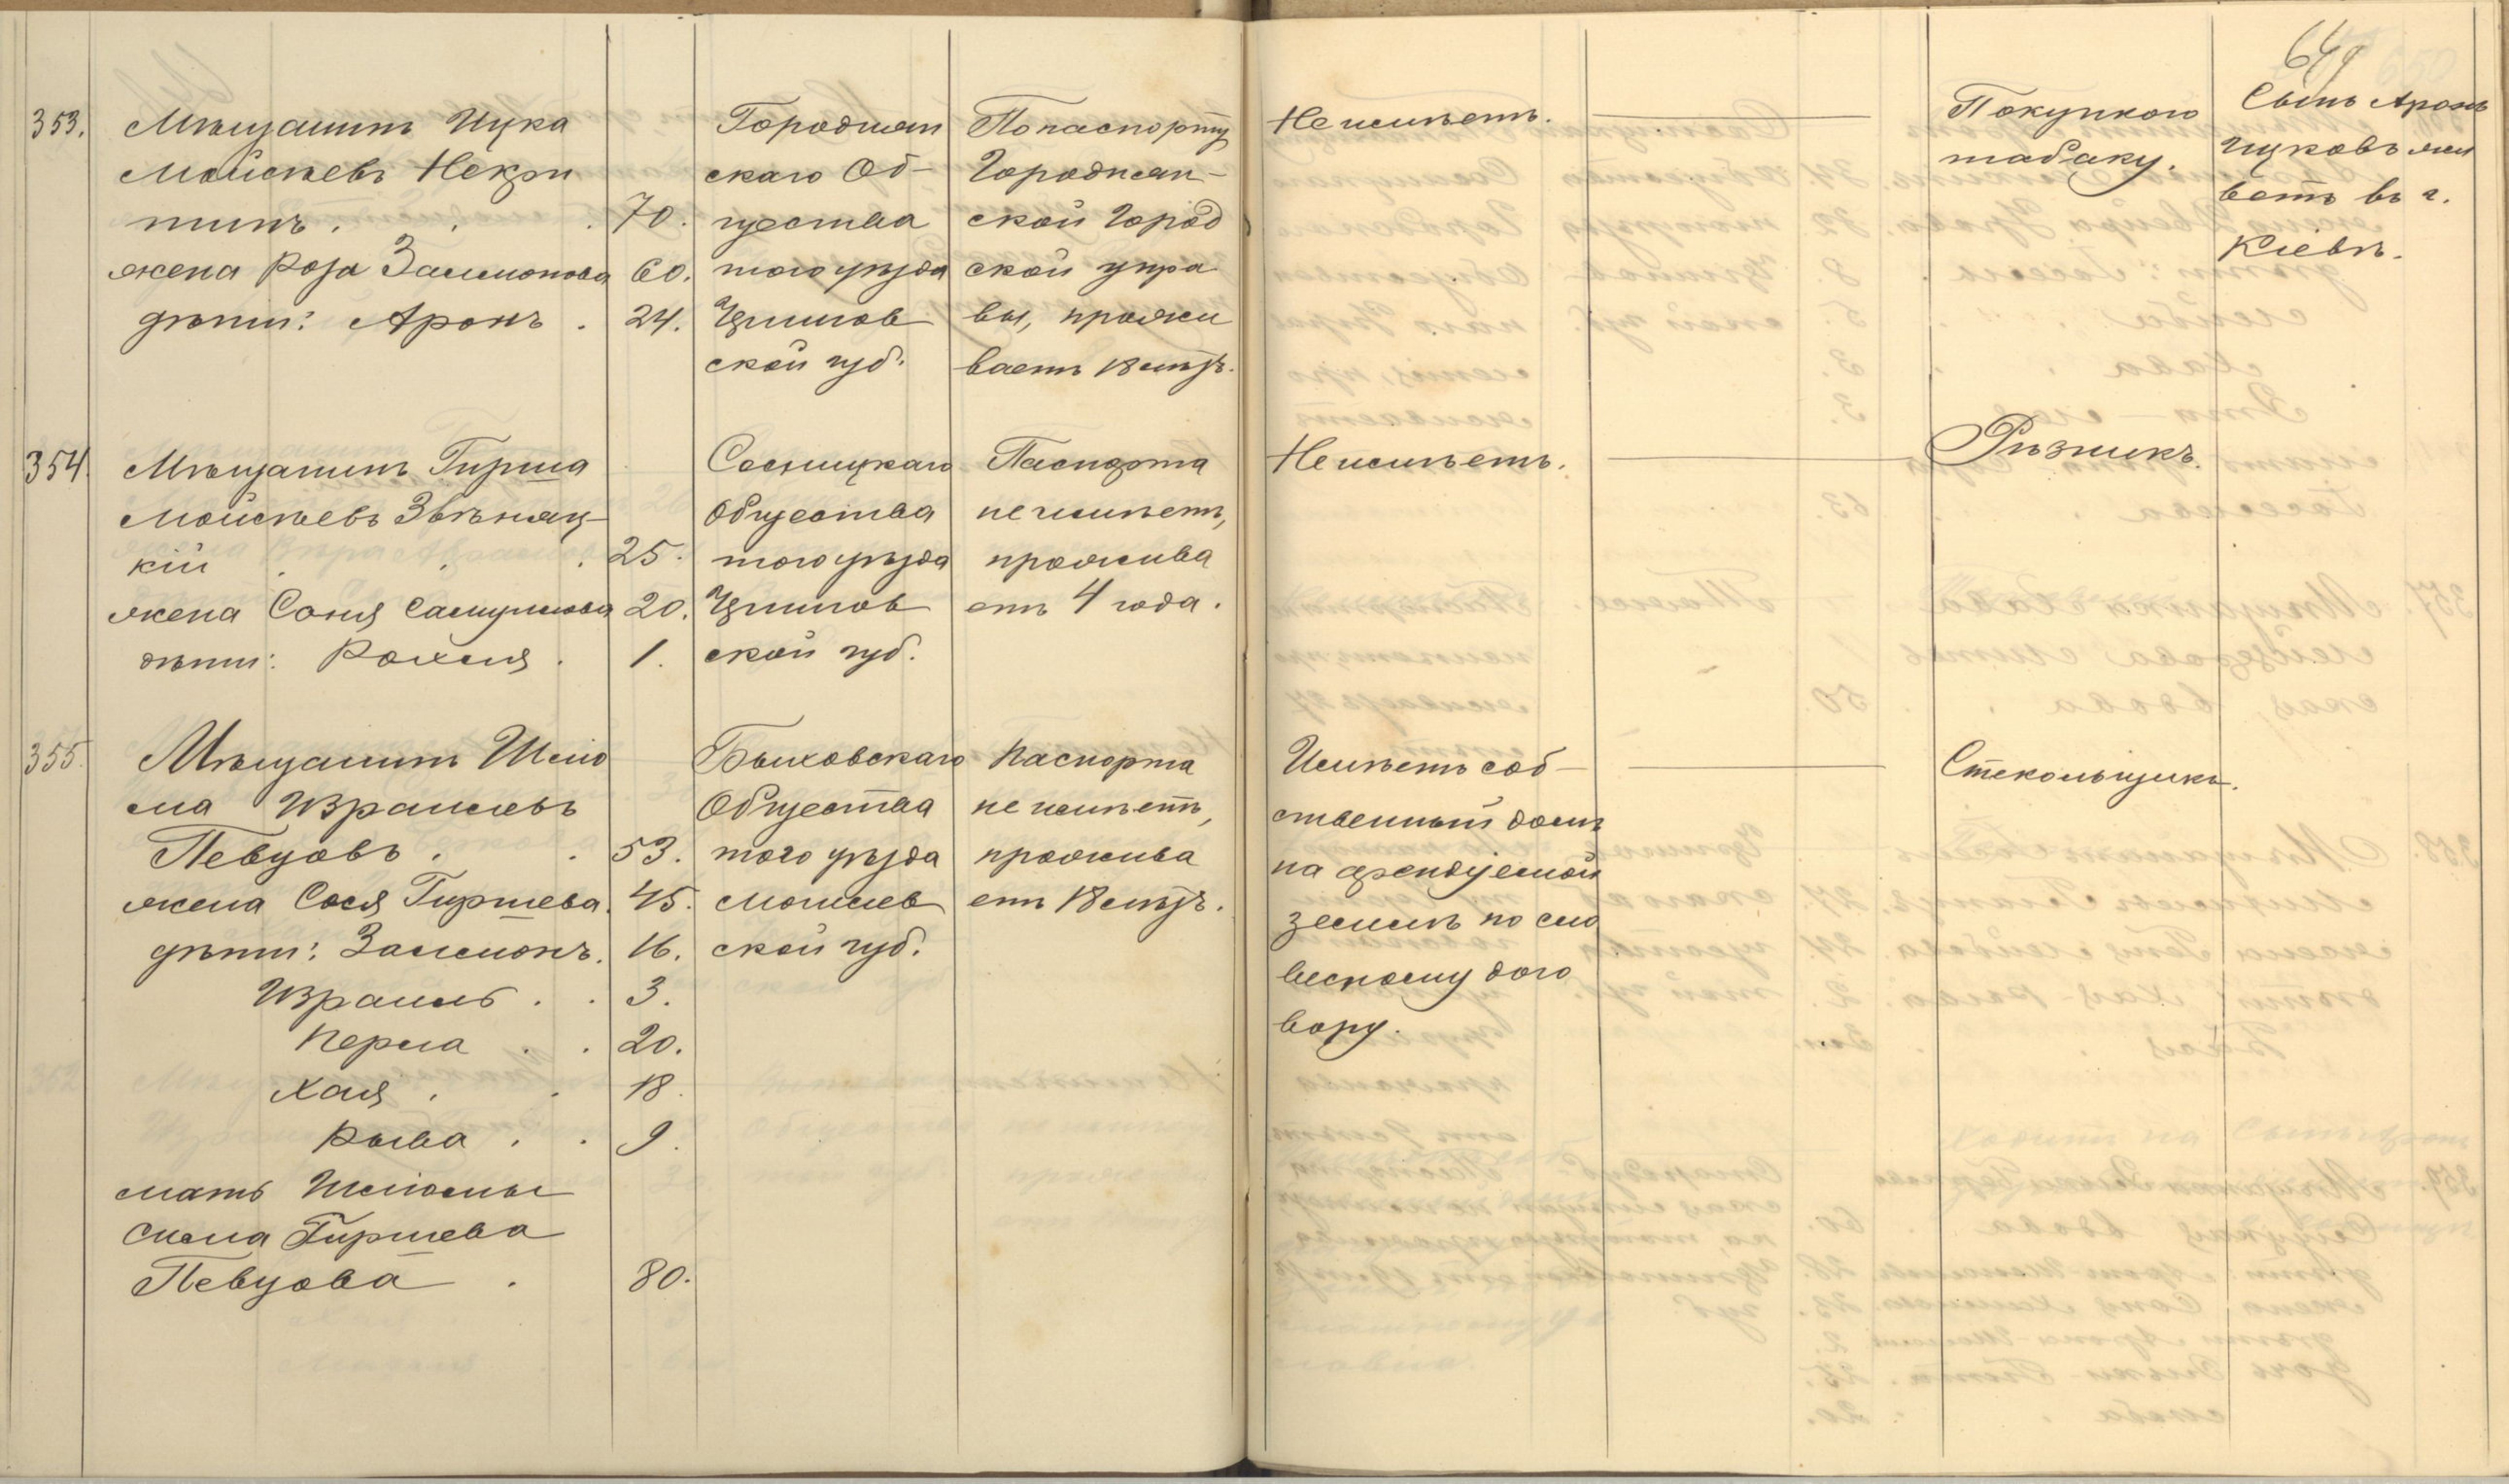 649
353. Мѣщанинъ Ицка
Мойсѣевъ Некри
тинъ . . . 70.
жена Роза Залмонова 60.
дѣти: Аронъ . 24.
Городнян
скаго Об-
щества
того уѣзда
Чернигов
ской губ.
По паспорту
Городнян-
ской Город
ской упра
вы, прожи
ваетъ 18 лѣтъ.
Не имѣетъ.
Покупкою
табаку.
Сынъ Аронъ
Ицковъ жи
ветъ въ г.
Кіевѣ.
354. Мѣщанинъ Гирша
Мойсѣевъ Звѣняц-
кій . . . 25.
жена Соня Самуилова 20.
дѣти: Рохля . 1.
Сосницкаго
Общества
того уѣзда
Чернигов
ской губ.
Паспорта
не имѣетъ,
прожива
етъ 4 года.
Не имѣетъ.
Рѣзникъ.
355. Мѣщанинъ Шлио
ма Израилевъ
Певцовъ . . 53.
жена Сося Гиршева. 45.
дѣти: Залмонъ. 16.
Израиль . . 3.
Перла . . 20.
Хая . . 18.
Рыва . . 9.
мать Шліомы
Сима Гиршева
Певцова . 80.
Быховскаго
Общества
того уѣзда
Могилев
ской губ.
Паспорта
не имѣетъ,
прожива
етъ 18 лѣтъ.
Имѣетъ соб-
ственный домъ
на арендуемой
землѣ по сло
весному дого
вору.
Стекольщикъ.